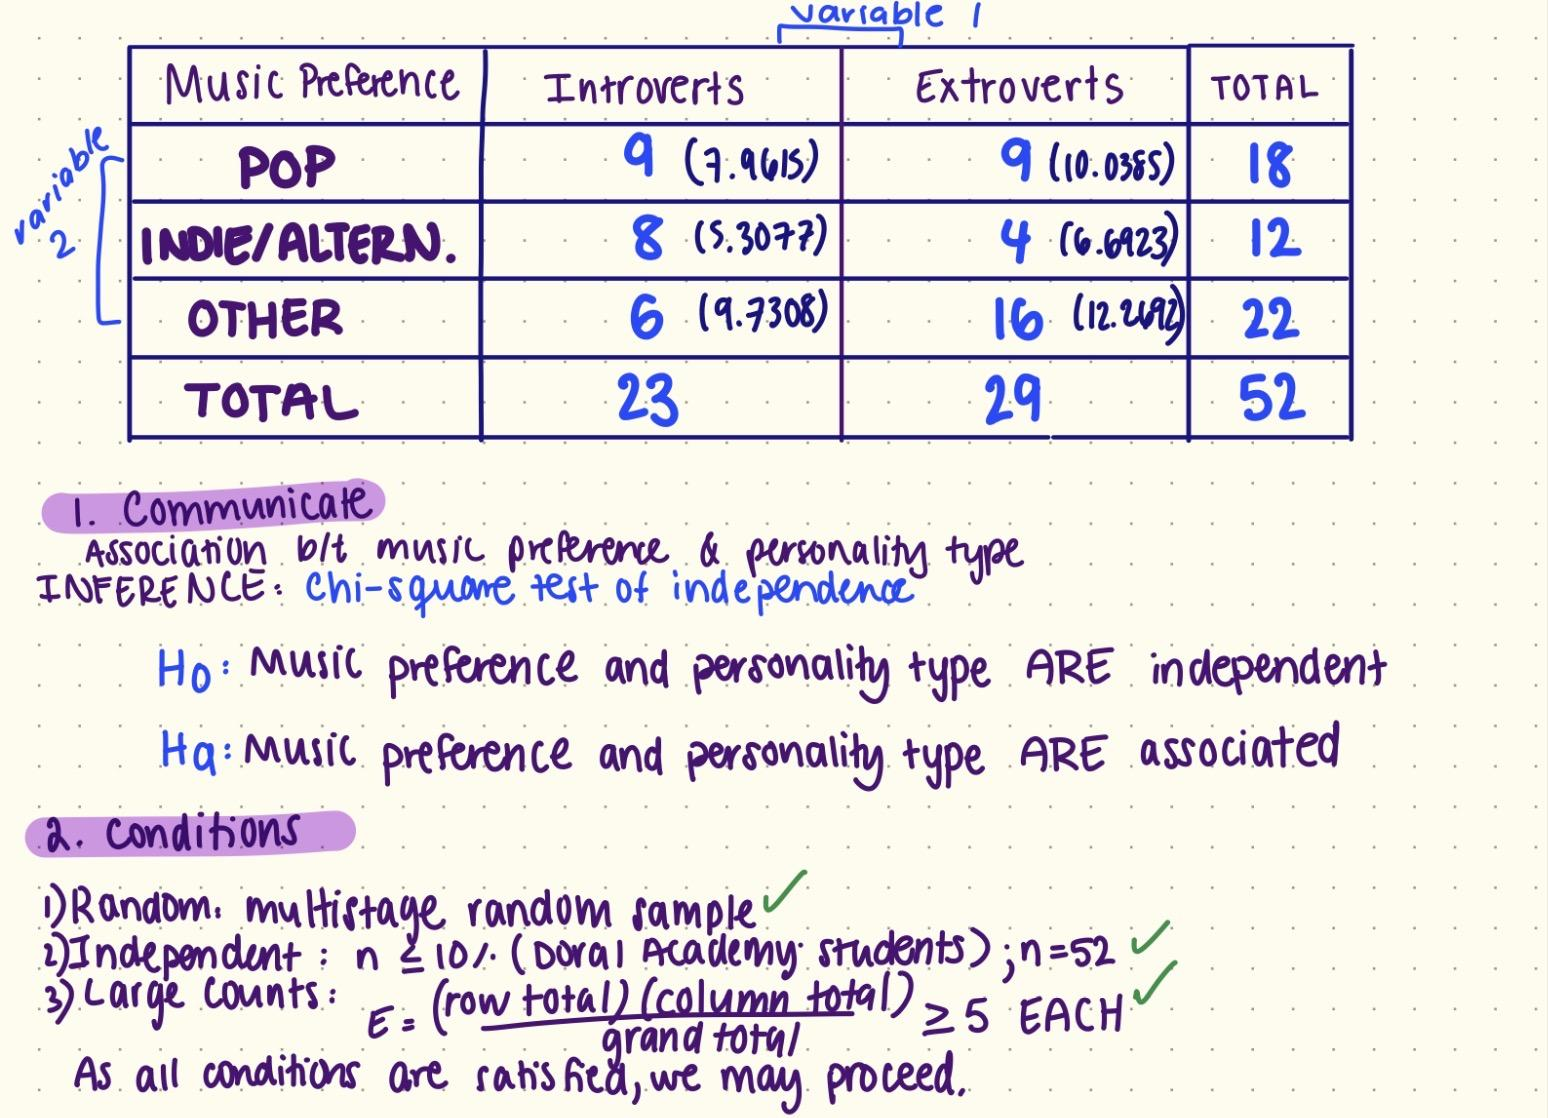 variable 1
Music Preference Introverts Extroverts TOTAL
variable 2
POP 9 (7.9615) 9 (10.0385) 18
INDIE/ALTERN. 8 (5.3077) 4 (6.6923) 12
OTHER 6 (9.7308) 16 (12.2692) 22
TOTAL 23 29 52
1. Communicate
Association b/t music preference & personality type
INFERENCE: Chi-square test of independence
Ho: Music preference and personality type ARE independent
Ha: Music preference and personality type ARE associated
2. Conditions
1) Random: multistage random sample ✓
2) Independent: n ≤ 10% (Doral Academy students); n=52 ✓
3) Large Counts: E = (row total)(column total) / grand total ≥ 5 EACH ✓
As all conditions are satisfied, we may proceed.